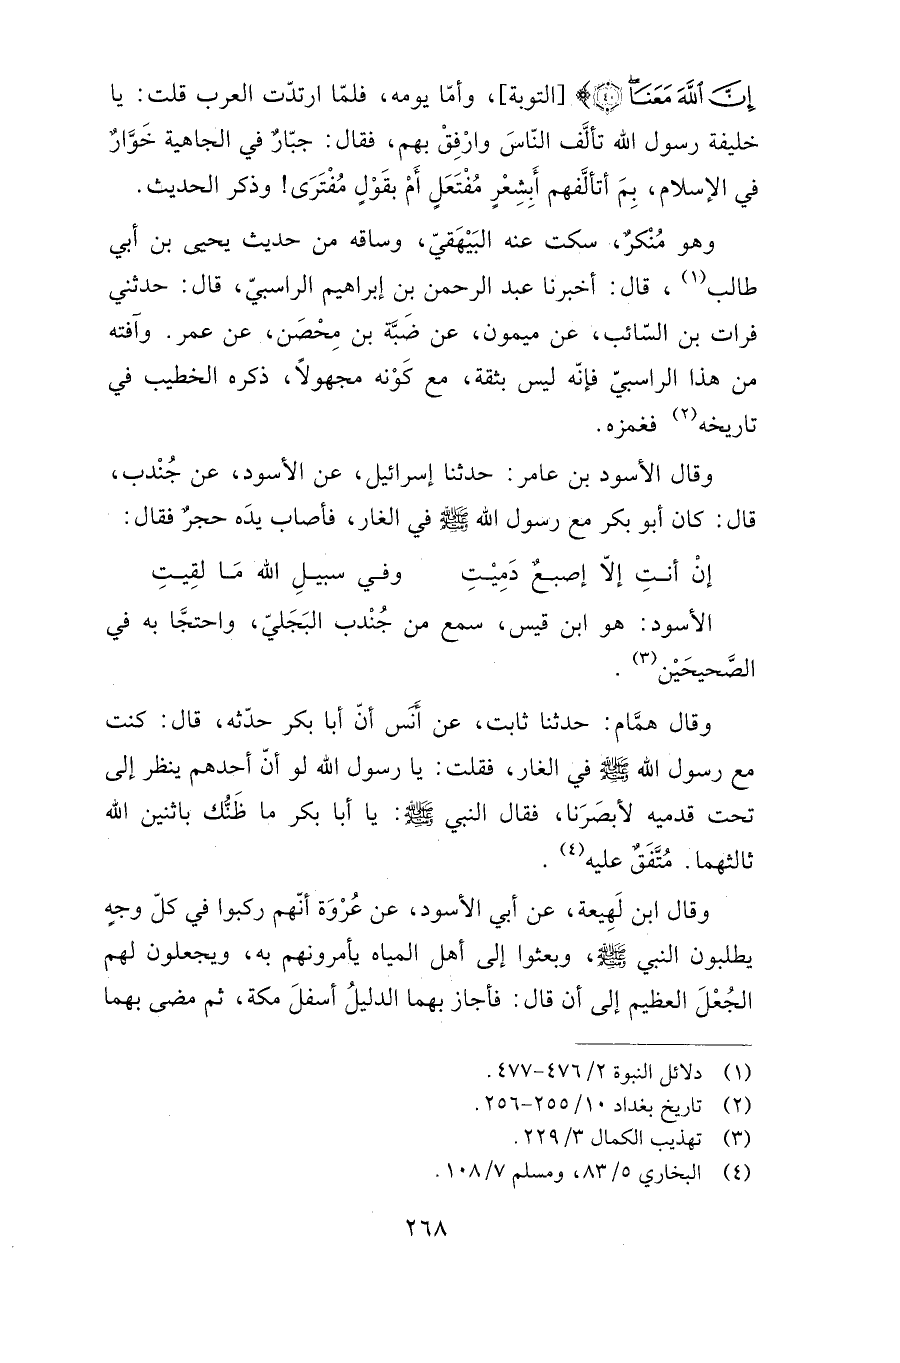 إِنَّ ٱللَّهَ مَعَنَا ۝٤٠﴾ [التوبة]، وأمّا يومه، فلمّا ارتدّت العرب قلت: يا
خليفة رسول الله تألَّف النّاسَ وارْفِقْ بهم، فقال: جبّارٌ في الجاهية خَوَّارٌ
في الإسلام، بِمَ أتألَّفهم أَبِشِعْرٍ مُفْتَعَلٍ أَمْ بقَوْلٍ مُفْتَرَى! وذكر الحديث.
وهو مُنْكرٌ، سكت عنه البَيْهَقيّ، وساقه من حديث يحيى بن أبي
طالب(١)، قال: أخبرنا عبد الرحمن بن إبراهيم الراسبيّ، قال: حدثني
فرات بن السّائب، عن ميمون، عن ضَبَّة بن مِحْصَن، عن عمر. وآفته
من هذا الراسبيّ فإنّه ليس بثقة، مع كَوْنه مجهولاً، ذكره الخطيب في
تاريخه(٢) فغمزه.
وقال الأسود بن عامر: حدثنا إسرائيل، عن الأسود، عن جُنْدب،
قال: كان أبو بكر مع رسول الله ﷺ في الغار، فأصاب يدَه حجرٌ فقال:
إنْ أنـتِ إلاّ إصبـعٌ دَمِيْـتِ وفـي سبيـلِ الله مَـا لقِيـتِ
الأسود: هو ابن قيس، سمع من جُنْدب البَجَليّ، واحتجَّا به في
الصَّحيحَيْن(٣).
وقال همَّام: حدثنا ثابت، عن أَنَس أنّ أبا بكر حدّثه، قال: كنت
مع رسول الله ﷺ في الغار، فقلت: يا رسول الله لو أنّ أحدهم ينظر إلى
تحت قدميه لأبصَرَنا، فقال النبي ﷺ: يا أبا بكر ما ظَنُّك باثنين الله
ثالثهما. مُتَّفَقٌ عليه(٤).
وقال ابن لَهِيعة، عن أبي الأسود، عن عُرْوَة أنّهم ركبوا في كلّ وجهٍ
يطلبون النبي ﷺ، وبعثوا إلى أهل المياه يأمرونهم به، ويجعلون لهم
الجُعْلَ العظيم إلى أن قال: فأجاز بهما الدليلُ أسفلَ مكة، ثم مضى بهما
(١) دلائل النبوة ٢/ ٤٧٦-٤٧٧.
(٢) تاريخ بغداد ١٠/ ٢٥٥-٢٥٦.
(٣) تهذيب الكمال ٣/ ٢٢٩.
(٤) البخاري ٥/ ٨٣، ومسلم ٧/ ١٠٨.
٢٦٨